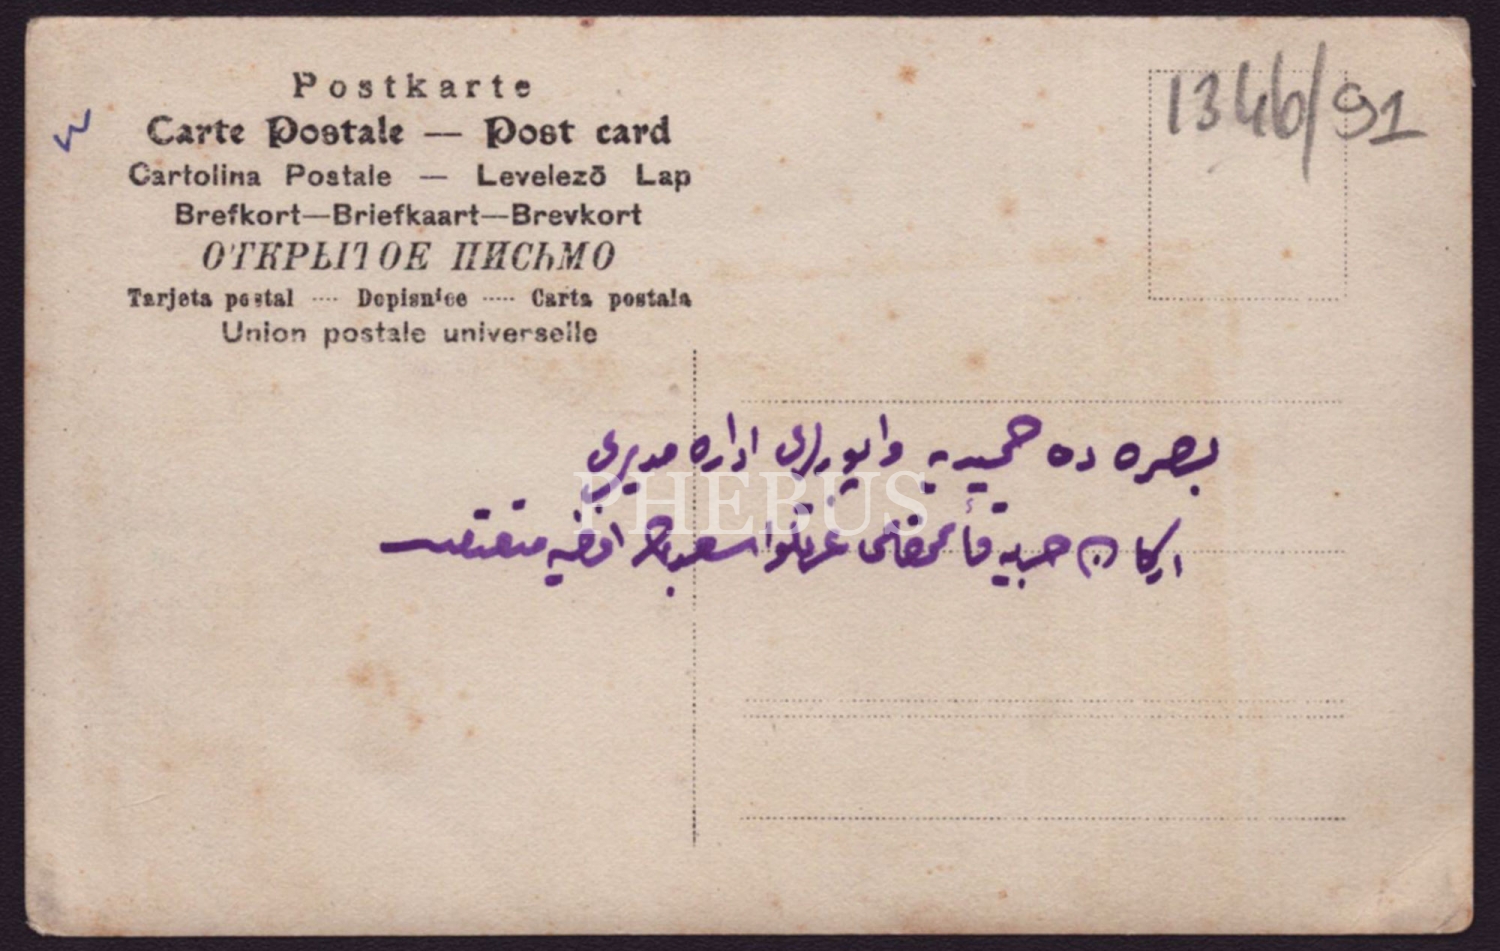 Postkarte
Carte Postale — Post card
Cartolina Postale — Levelező Lap
Brefkort—Briefkaart—Brevkort
ОТКРЫТОЕ ПИСЬМО
Tarjeta postal ···· Dopisnice ····· Carta postala
Union postale universelle
1346/91
بصره ده حمیدیه واپورلری اداره مدیری
اركان حربیه قائممقامی عزتلو اسعد افندیه
PHEBUS